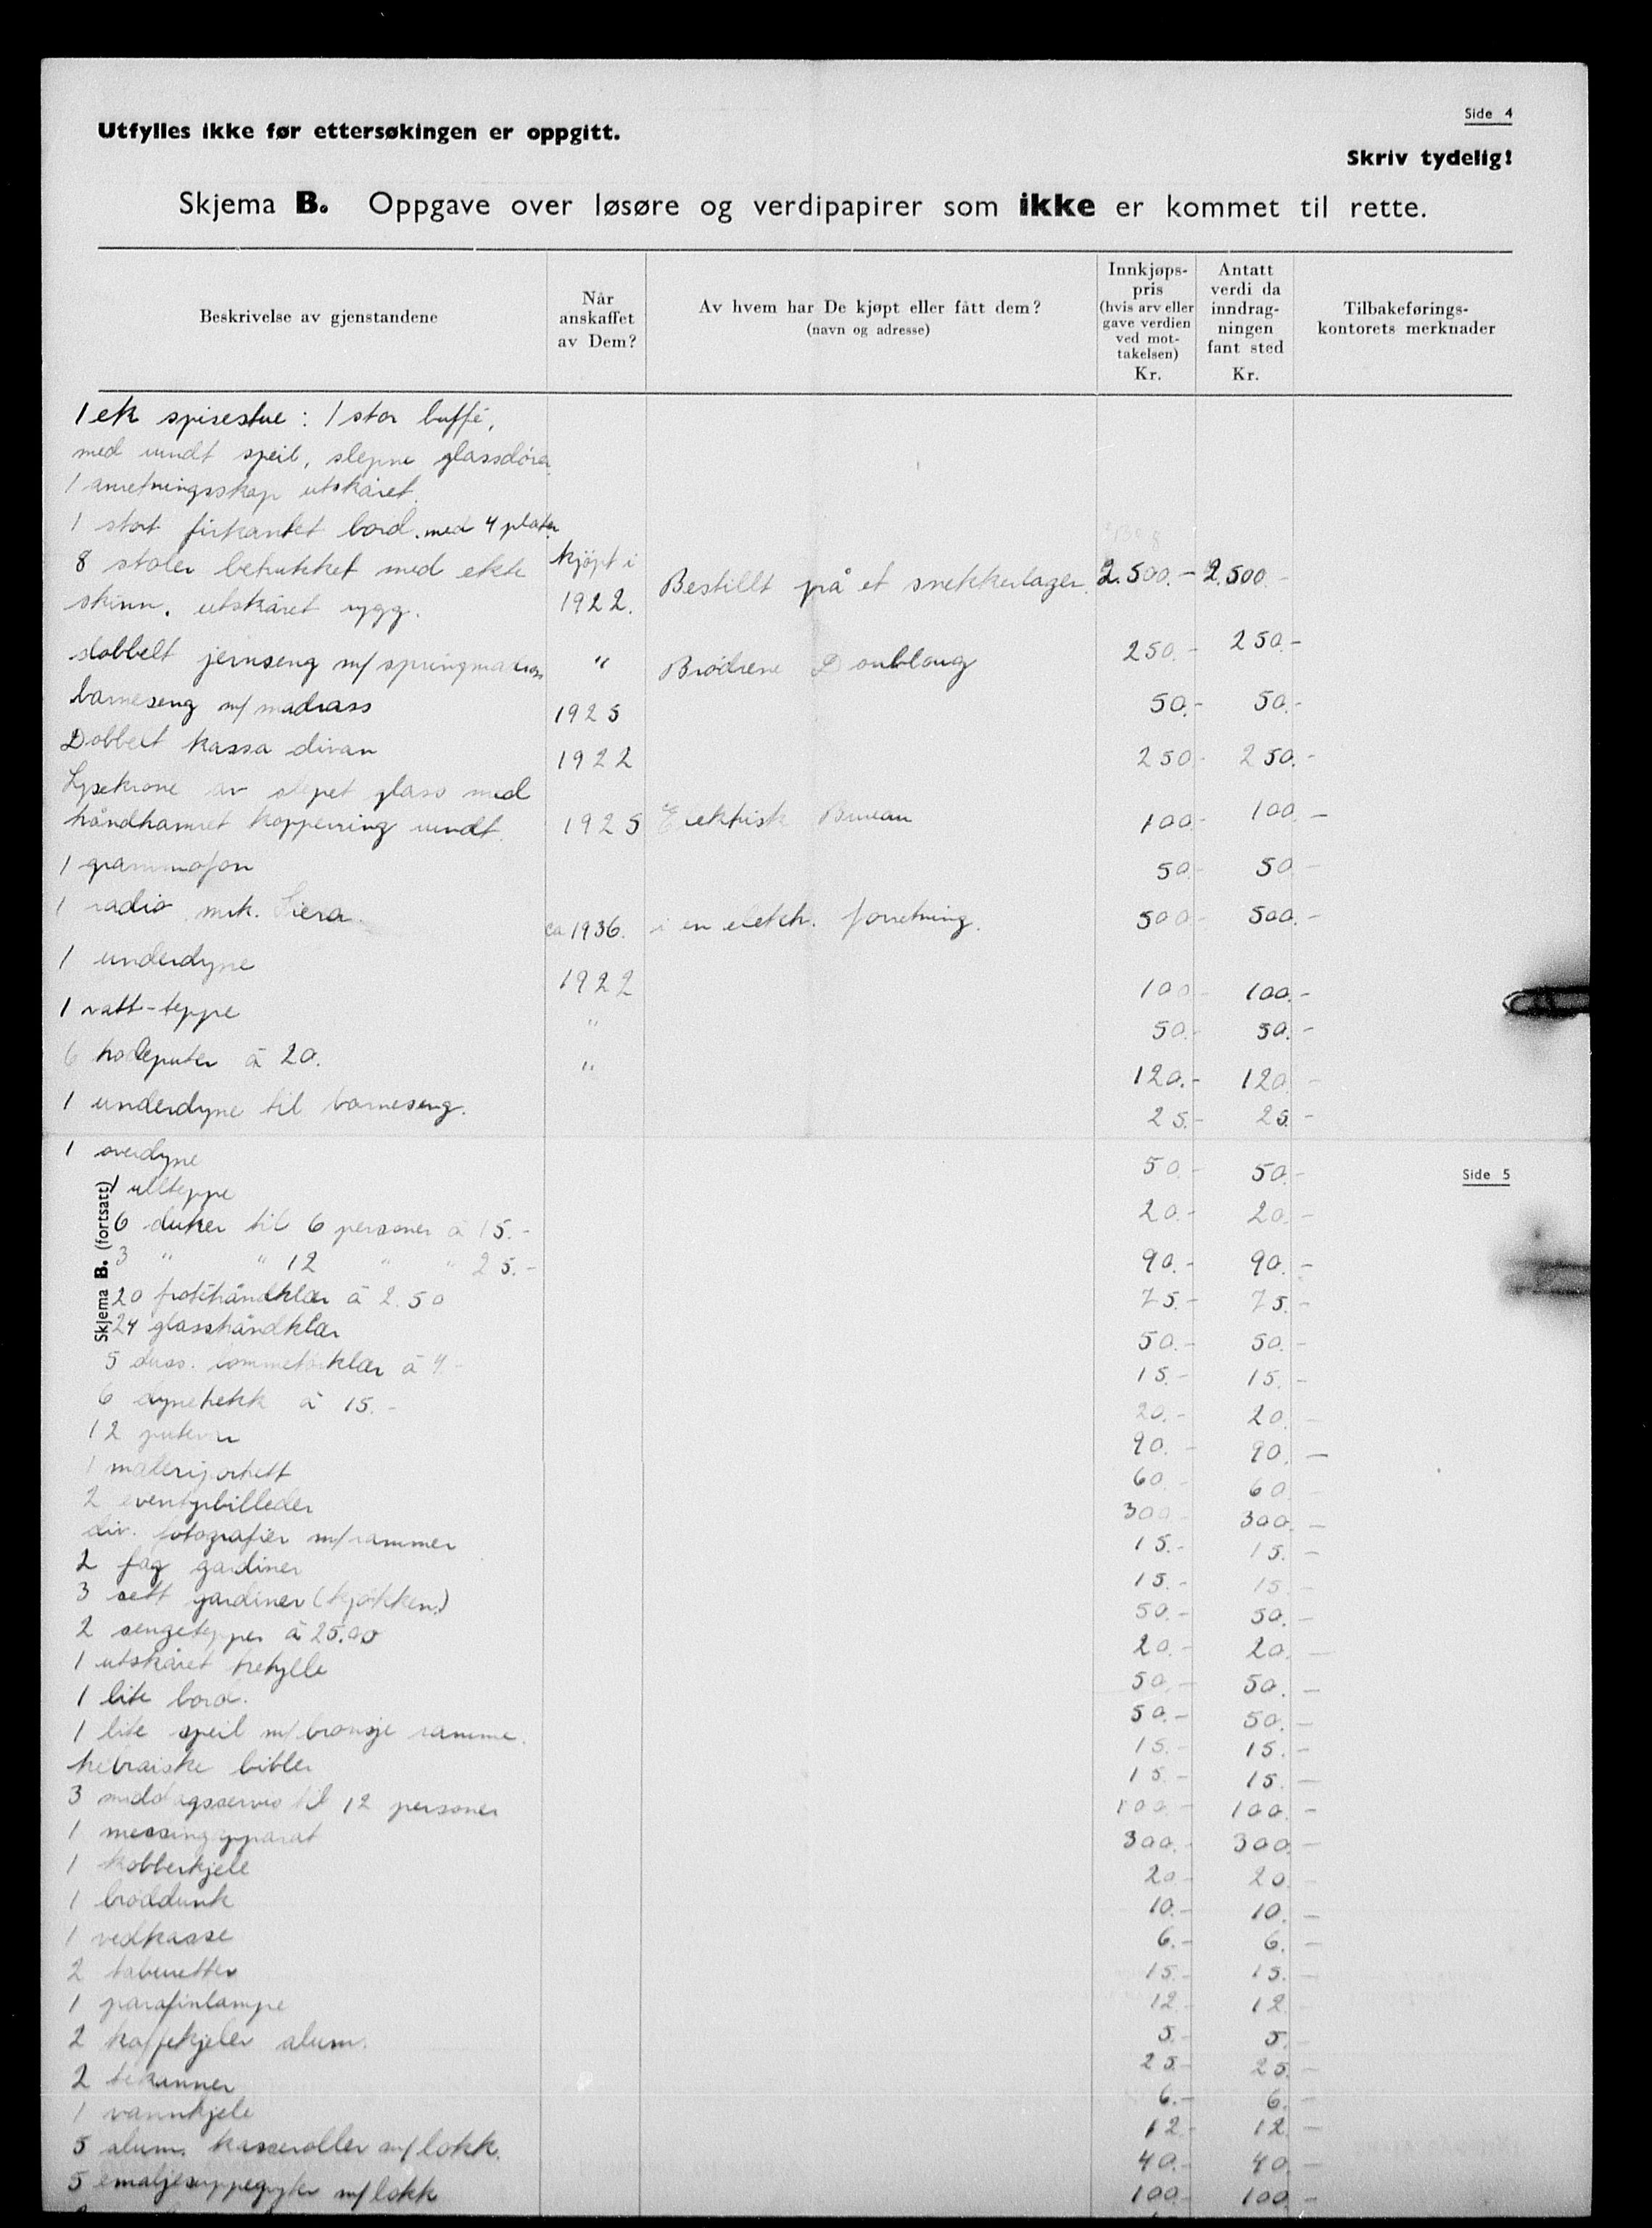 Side 4
Utfylles ikke før ettersøkingen er oppgitt.
Skriv tydelig!
Skjema B. Oppgave over løsøre og verdipapirer som ikke er kommet til rette.
Beskrivelse av gjenstandene
Når anskaffet av Dem?
Av hvem har De kjøpt eller fått dem? (navn og adresse)
Innkjøps-pris (hvis arv eller gave verdien ved mot-takelsen) Kr.
Antatt verdi da inndrag-ningen fant sted Kr.
Tilbakeførings-kontorets merknader
1 ek spisestue: 1 stor buffé,
med rundt speil, slepne glassdører
1 anretningsskap utskåret.
1 stort firkantet bord. med 4 plater
8 stoler betrukket med ekte kjøpt i
skinn. utskåret rygg. 1922. Bestillt på et snekkerlager. 2.500.- 2.500.-
dobbelt jernseng m/springmadrass " Brødrene Doublong 250.- 250.-
barneseng m/madrass 1925 50.- 50.-
Dobbelt kassa divan 1922 250.- 250.-
Lysekrone av slepet glass med
håndhamret kopperring rundt. 1925 Elektrisk Bureau 100.- 100.-
1 grammofon 50.- 50.-
1 radio mrk. Siera. ca 1936. i en elektr. forretning. 500.- 500.-
1 underdyne 1922 100.- 100.-
1 vatt-teppe " 50.- 50.-
6 hodeputer à 20. " 120.- 120.-
1 underdyne til barneseng. 25.- 25.-
1 overdyne 50.- 50.-
Side 5
Skjema B. (fortsatt)
1 ullteppe 20.- 20.-
6 duker til 6 personer à 15.- 90.- 90.-
3 " " 12 " " 25.- 75.- 75.-
20 frotéhåndklær à 2.50 50.- 50.-
24 glasshåndklær 15.- 15.-
5 duss. lommetørklær à 4.- 20.- 20.-
6 dynetrekk à 15.- 90.- 90.-
12 putevar 60.- 60.-
1 maleriportrett 300.- 300.-
2 eventyrbilleder 15.- 15.-
div. fotografier m/rammer 15.- 15.-
2 fag gardiner 50.- 50.-
3 sett gardiner (kjøkken) 20.- 20.-
2 sengetepper à 25.00 50.- 50.-
1 utskåret trehylle 50.- 50.-
1 lite bord. 15.- 15.-
1 lite speil m/bronsje ramme. 15.- 15.-
hebraiske bibler 100.- 100.-
3 middagsservis til 12 personer 300.- 300.-
1 messingapparat 20.- 20.-
1 kobberkjele 10.- 10.-
1 brøddunk 6.- 6.-
1 vedkasse 15.- 15.-
2 taburetter 12.- 12.-
1 parafinlampe 5.- 5.-
2 kaffekjeler alum. 25.- 25.-
2 tekanner 6.- 6.-
1 vannkjele 12.- 12.-
5 alum. kasseroller m/lokk. 40.- 40.-
5 emaljesuppegryter m/lokk 100.- 100.-